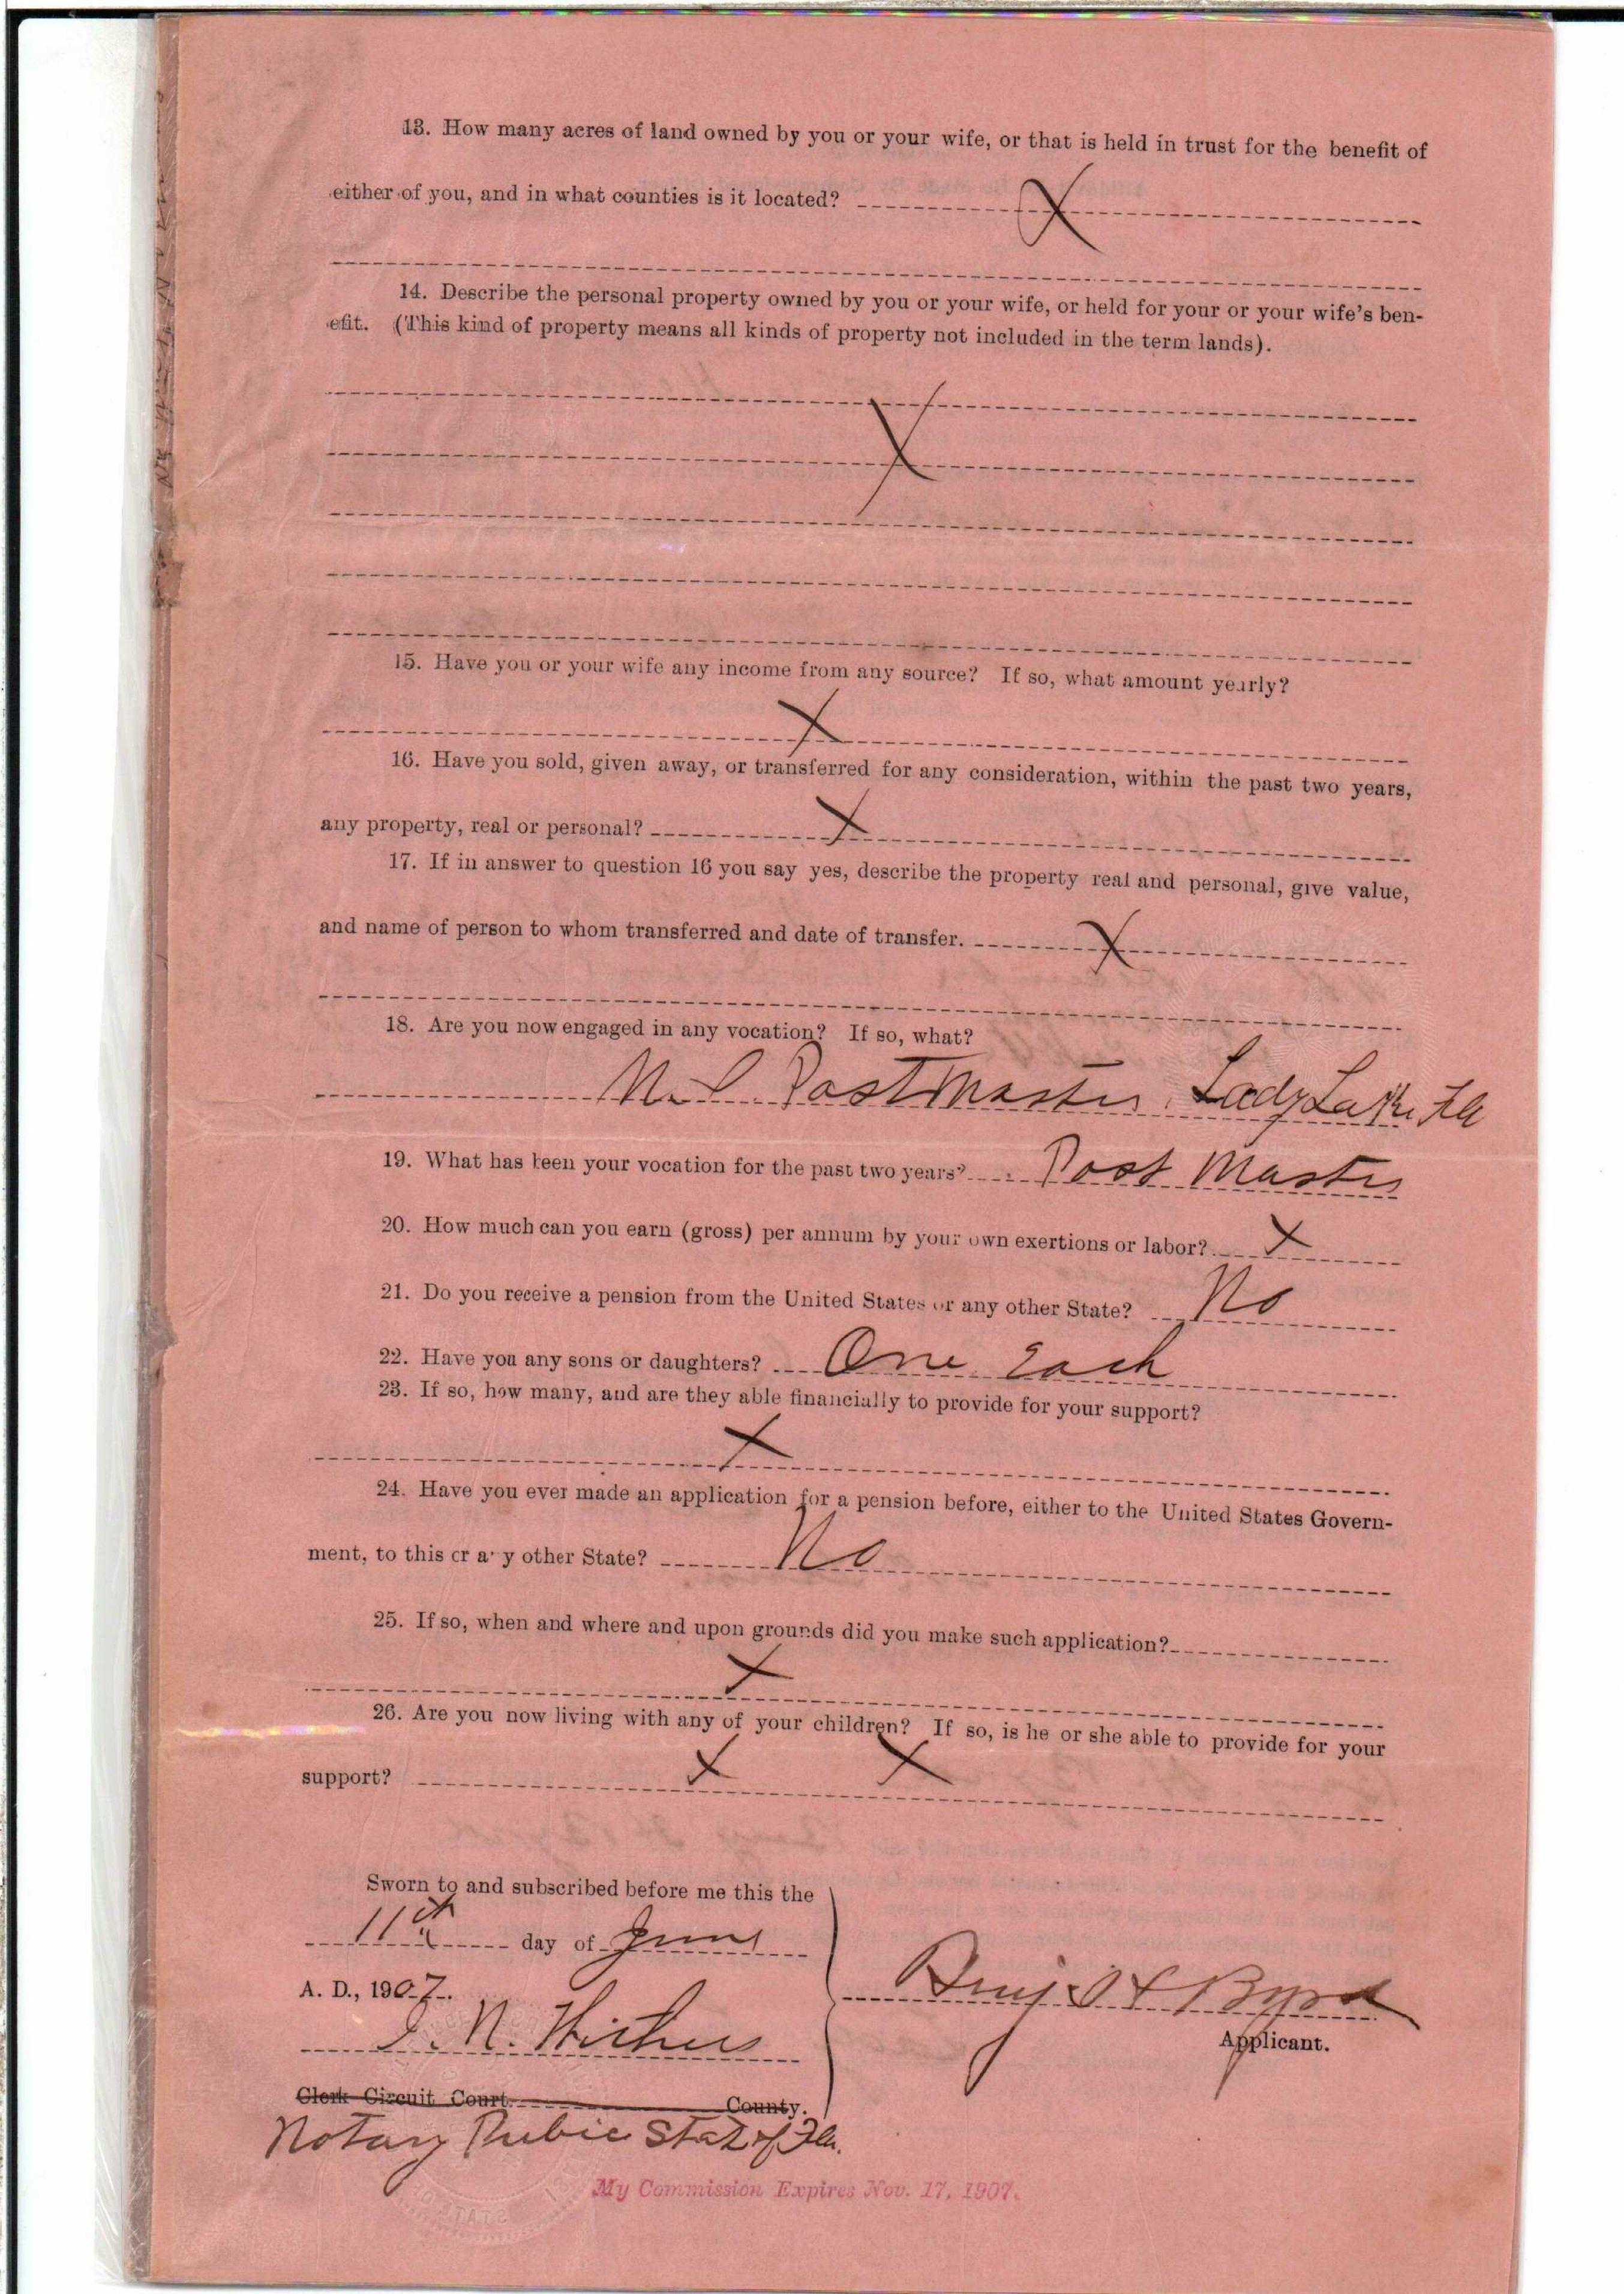 13. How many acres of land owned by you or your wife, or that is held in trust for the benefit of
either of you, and in what counties is it located? X
14. Describe the personal property owned by you or your wife, or held for your or your wife's ben-
efit. (This kind of property means all kinds of property not included in the term lands).
X
15. Have you or your wife any income from any source? If so, what amount yearly?
X
16. Have you sold, given away, or transferred for any consideration, within the past two years,
any property, real or personal? X
17. If in answer to question 16 you say yes, describe the property real and personal, give value,
and name of person to whom transferred and date of transfer. X
18. Are you now engaged in any vocation? If so, what?
Postmaster Lady Lake Fla
19. What has been your vocation for the past two years? Post Master
20. How much can you earn (gross) per annum by your own exertions or labor? X
21. Do you receive a pension from the United States or any other State? No
22. Have you any sons or daughters? One Each
23. If so, how many, and are they able financially to provide for your support?
X
24. Have you ever made an application for a pension before, either to the United States Govern-
ment, to this or any other State? No
25. If so, when and where and upon grounds did you make such application?
X
26. Are you now living with any of your children? If so, is he or she able to provide for your
support? X X
Sworn to and subscribed before me this the
11th day of June
A. D., 1907.
Benj H Byrd
Applicant.
I. N. Withers
Clerk Circuit Court County.
Notary Pubic State of Fla.
My Commission Expires Nov. 17, 1907.